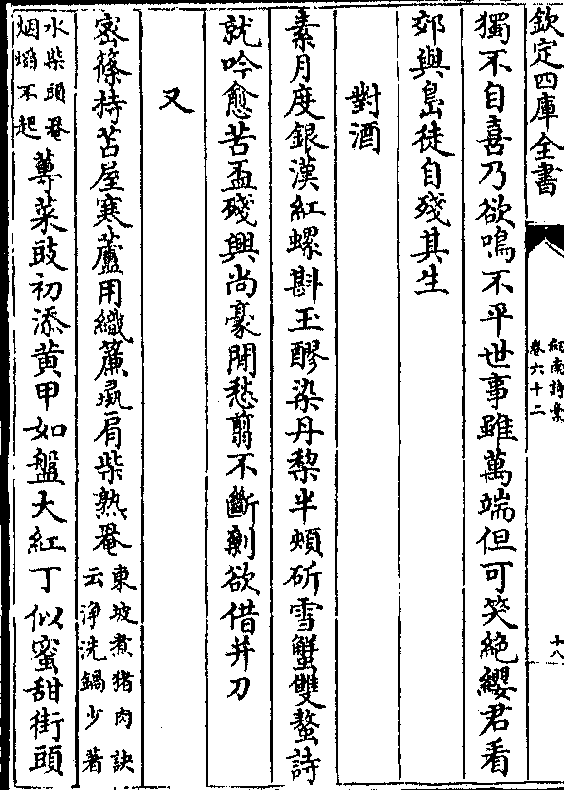 欽定四庫全書
劍南詩藁
卷六十二
十八
獨不自喜乃欲鳴不平世事雖萬端但可笑絶纓君看
郊與島徒自殘其生
對酒
素月度銀漢紅螺斟玉醪染丹棃半頰斫雪蟹雙螯詩
就吟愈苦盃殘興尚豪閒愁翦不斷剰欲借并刀
又
宻篠持苫屋寒蘆用織簾彘肩柴熟罨東坡煮猪肉訣
云浄洗鍋少著
水柴頭罨
烟熖不起蓴菜豉初添黄甲如盤大紅丁似蜜甜街頭